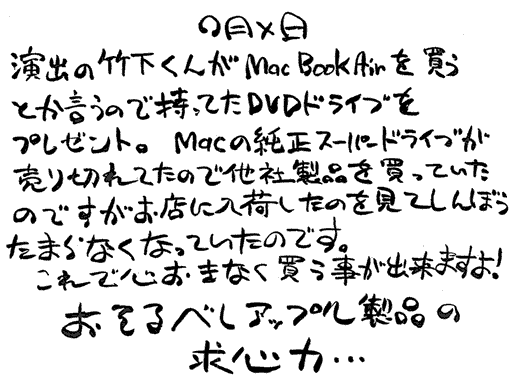 ○月×日
演出の竹下くんがMac Book Airを買う
とか言うので持ってたDVDドライブを
プレゼント。 Macの純正スーパードライブが
売り切れてたので他社製品を買っていた
のですがお店に入荷したのを見てしんぼう
たまらなくなっていたのです。
これで心おきなく買う事が出来ますよ!
おそるべしアップル製品の
求心力…